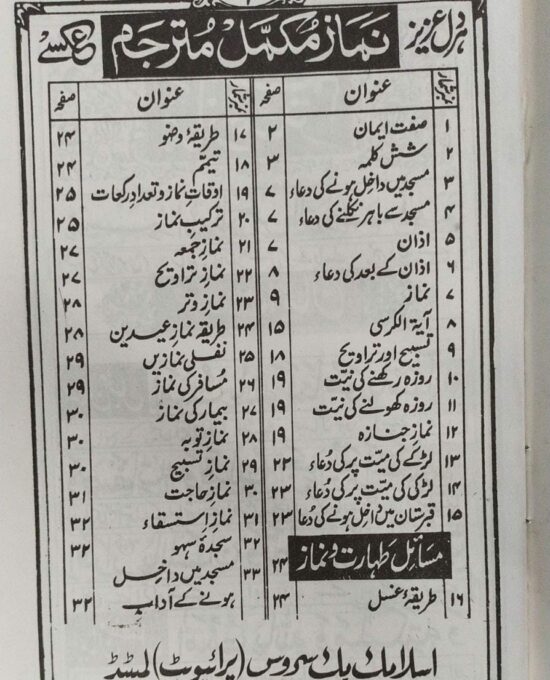 ہر دل عزیز نماز مکمل مترجم عکسی
نمبر شمار عنوان صفحہ
۱ صفت ایمان ۲
۲ شش کلمہ ۳
۳ مسجد میں داخل ہونے کی دعاء ۷
۴ مسجد سے باہر نکلنے کی دعاء ۷
۵ اذان ۷
۶ اذان کے بعد کی دعاء ۸
۷ نماز ۹
۸ آیۃ الکرسی ۱۵
۹ تسبیح اور تراویح ۱۸
۱۰ روزہ رکھنے کی نیت ۱۹
۱۱ روزہ کھولنے کی نیت ۱۹
۱۲ نماز جنازہ ۱۹
۱۳ لڑکے کی میت پر کی دُعاء ۲۳
۱۴ لڑکی کی میت پر کی دُعاء ۲۳
۱۵ قبرستان میں داخل ہونے کی دعا ۲۳
مسائل طہارت و نماز ۲۴
۱۶ طریقۂ غسل ۲۴
نمبر شمار عنوان صفحہ
۱۷ طریقۂ وضو ۲۴
۱۸ تیمّم ۲۴
۱۹ اوقاتِ نماز و تعداد رکعات ۲۵
۲۰ ترکیب نماز ۲۵
۲۱ نمازِ جمعہ ۲۷
۲۲ نماز تراویح ۲۷
۲۳ نماز وتر ۲۸
۲۴ طریقہ نماز عیدین ۲۸
۲۵ نفلی نمازیں ۲۹
۲۶ مُسافر کی نماز ۲۹
۲۷ بیمار کی نماز ۳۰
۲۸ نمازِ توبہ ۳۰
۲۹ نمازِ تسبیح ۳۰
۳۰ نماز حاجت ۳۱
۳۱ نمازِ استسقاء ۳۲
۳۲ سجدۂ سہو ۳۲
۳۳ مسجد میں داخل
ہونے کے آداب ۳۲
اسلامک بک سروس (پرائیویٹ) لمٹڈ